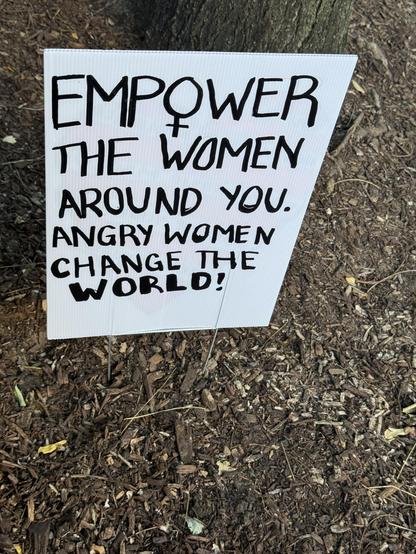 EMPOWER
THE WOMEN
AROUND YOU.
ANGRY WOMEN
CHANGE THE
WORLD!